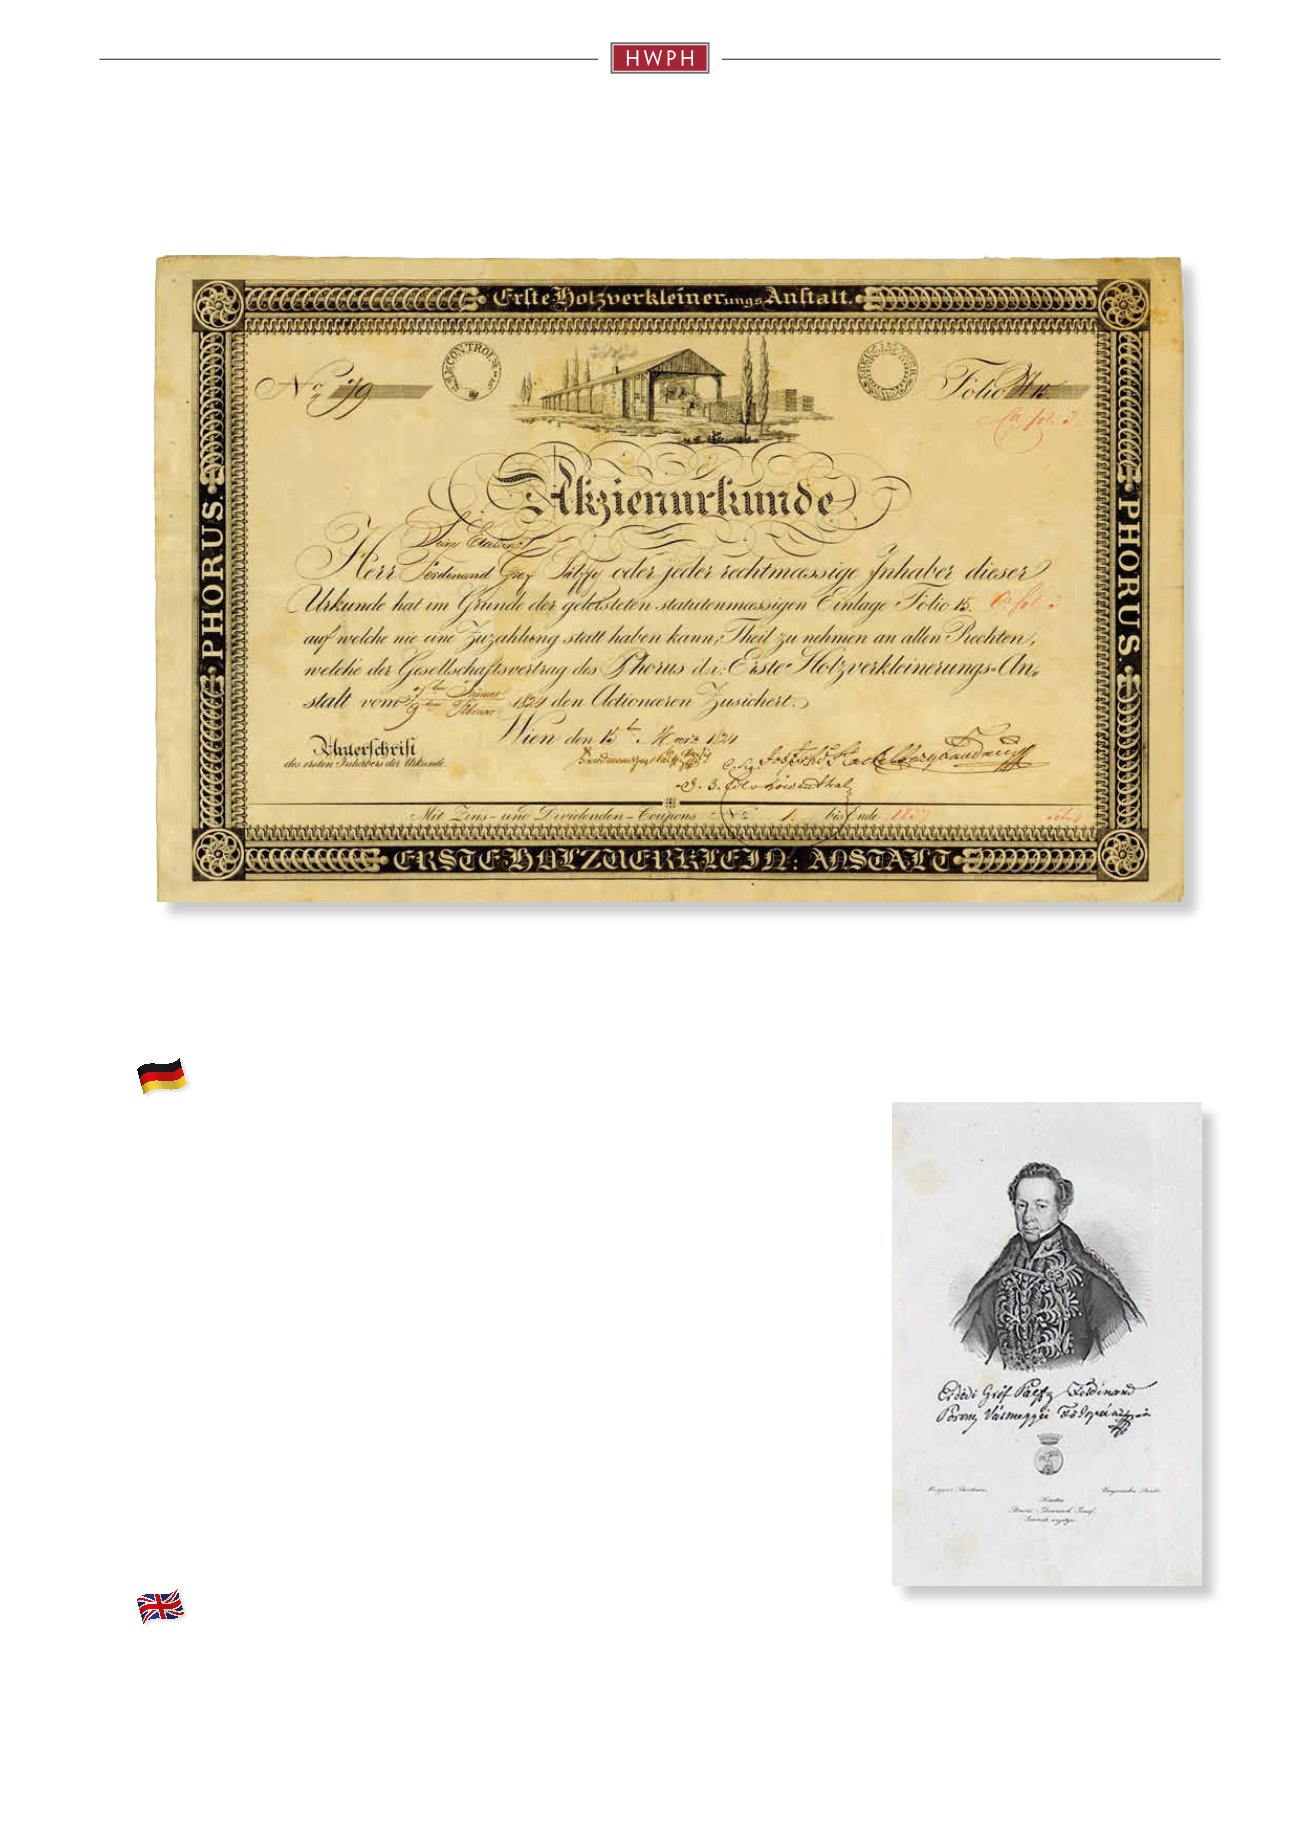 HWPH
Erste Holzverkleinerungs Anstalt.
CONTROL
No 119
Folio 15
fol. 3
PHORUS.
PHORUS.
Akzienurkunde
Seine Excellenz
Herr Ferdinand Graf Palffy oder jeder rechtmæssige Inhaber dieser
Urkunde hat im Grunde der geleisteten statutenmæssigen Einlage Folio 15. fol. 3
auf welche nie eine Zuzahlung statt haben kann, Theil zu nehmen an allen Rechten,
welche der Gesellschaftsvertrag des Phorus d.i. Erste Holzverkleinerungs-An-
stalt vom Jänner Februar 1824 den Actionären Zusichert.
Wien den 15ten März 1824
Unterschrift
des ersten Inhabers der Urkunde.
Mit Zins- und Dividenden-Coupons No 1. bis Ende
ERSTE HOLZVERKLEIN: ANSTALT
Erdödi Gróf Pálffy Ferdinand
Vármegyei Főispán